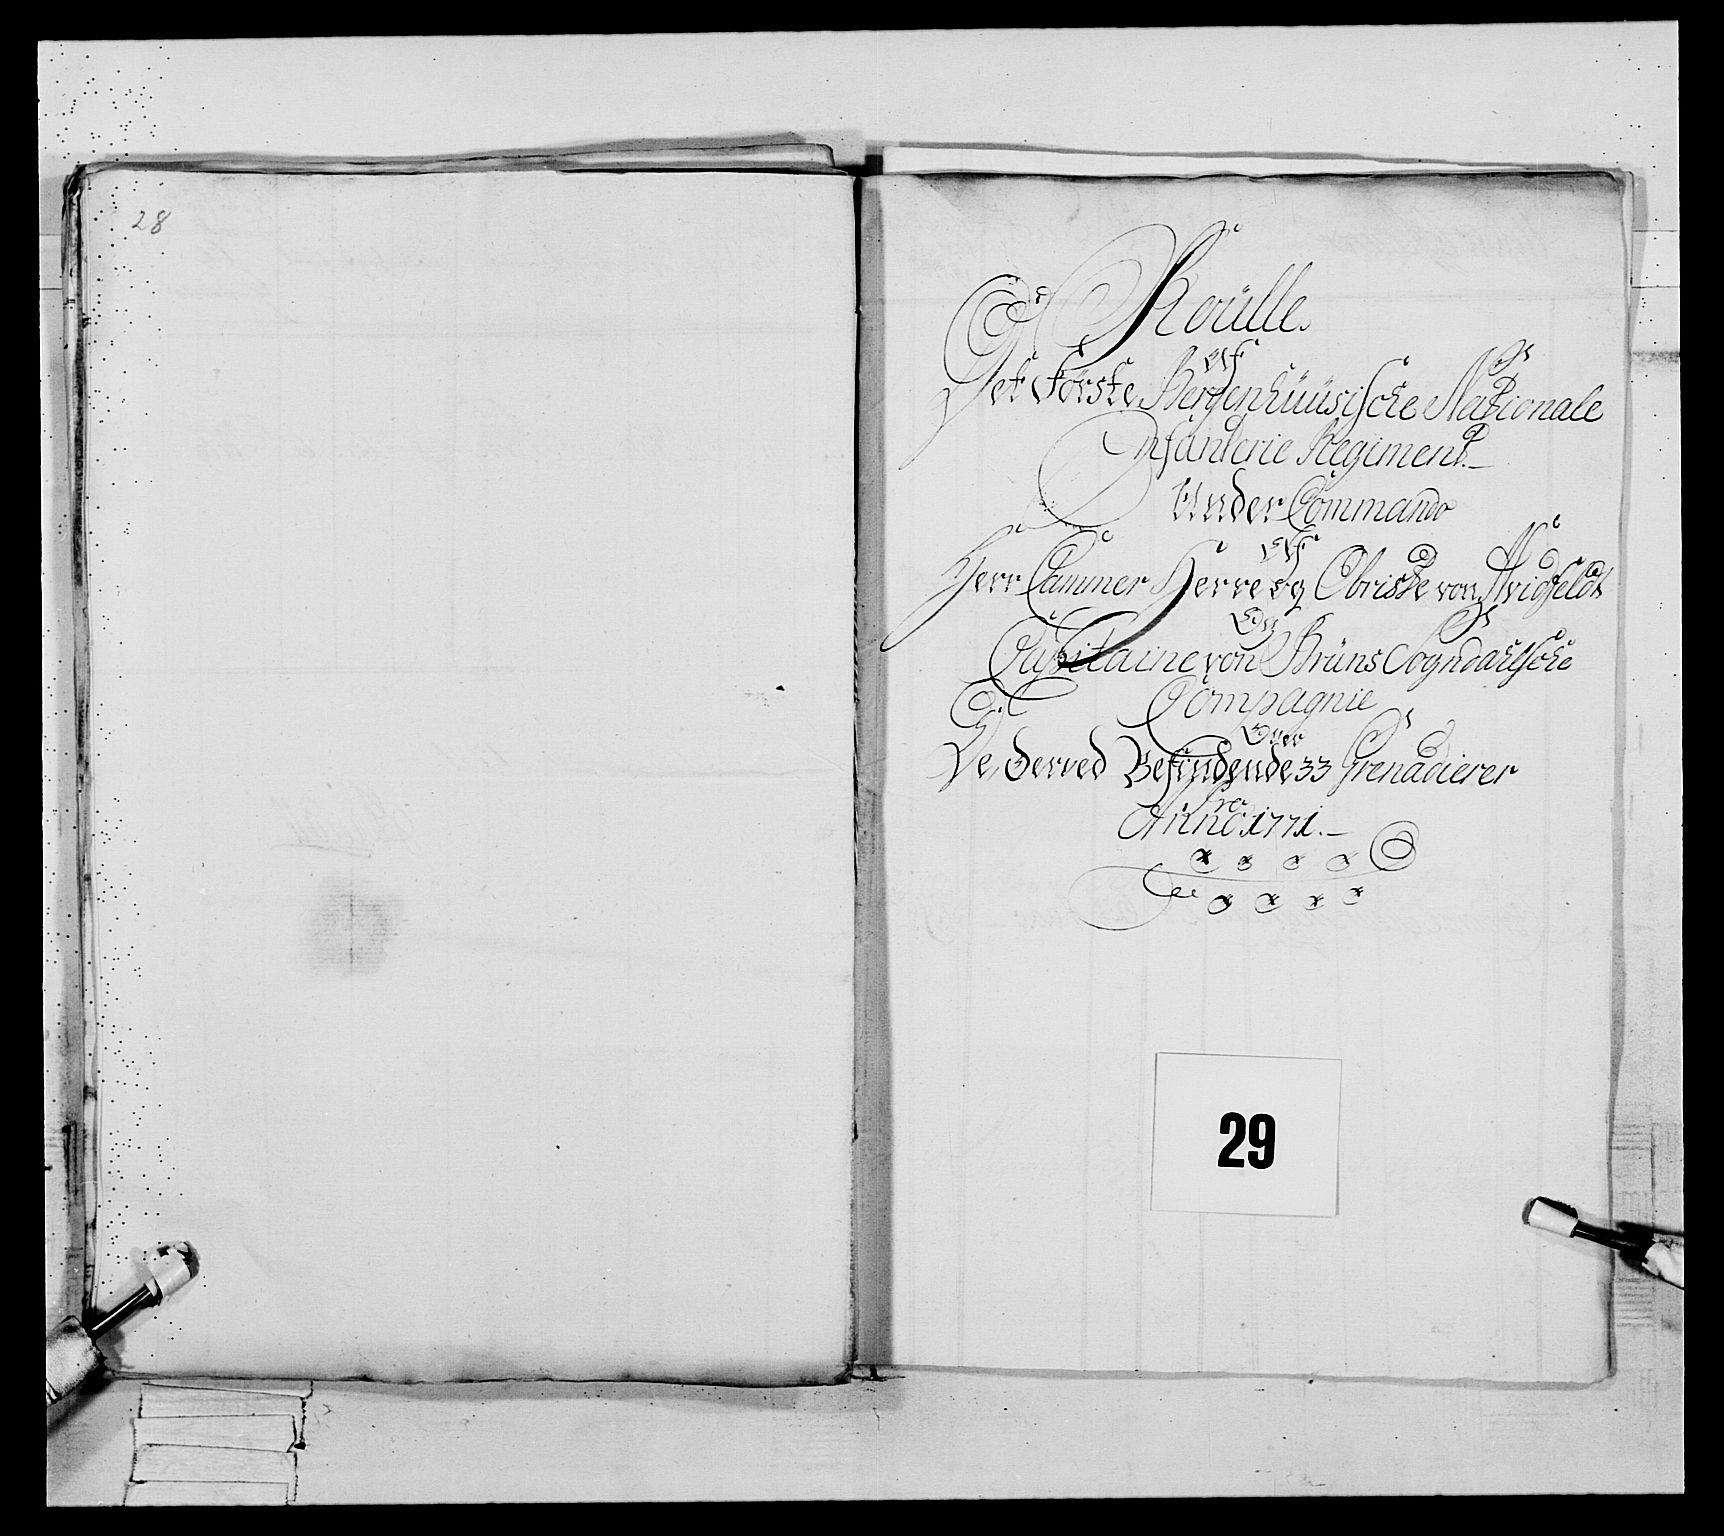 28
Roülle
Af
Det Förste Bergenhüüsische Nationale
Infanterie Regiment.
Under Commando
Af
Herr Cammer Herre og Obriste von Arildfeldt
Og
Capitaine von Brüns Sogndahlsche
Compagnie
Over
De, derved Befindende 33 Grenadierer
Pro
Anno 1771.
29